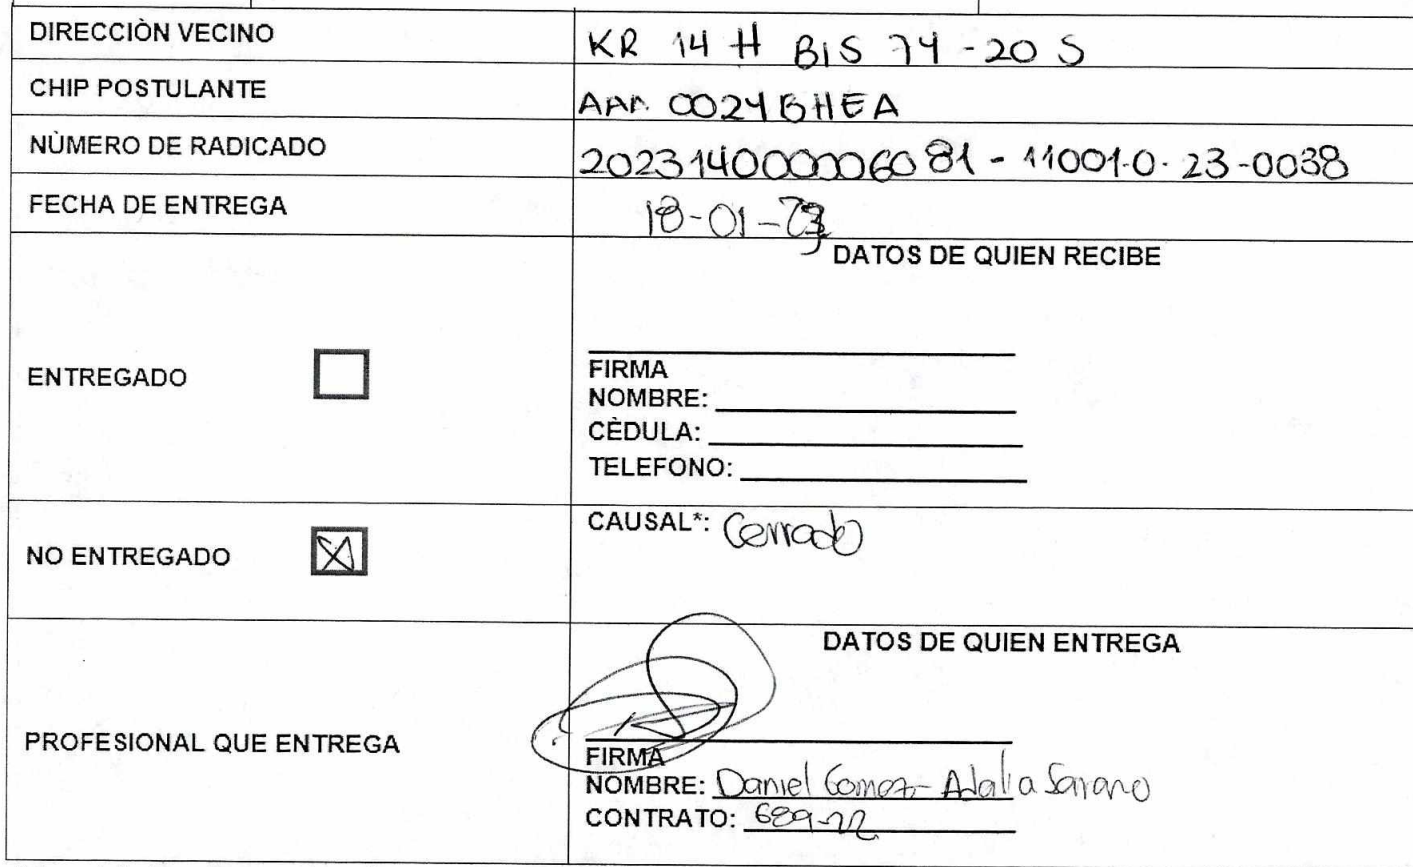 DIRECCIÒN VECINO
KR 14 H BIS 74-20 S
CHIP POSTULANTE
AAA 0024BHEA
NÙMERO DE RADICADO
202314000006081 - 11001-0-23-0038
FECHA DE ENTREGA
18-01-23
DATOS DE QUIEN RECIBE
ENTREGADO
FIRMA
NOMBRE:
CÈDULA:
TELEFONO:
NO ENTREGADO
CAUSAL*: Cerrado
DATOS DE QUIEN ENTREGA
PROFESIONAL QUE ENTREGA
FIRMA
NOMBRE: Daniel Gomez - Adalia
CONTRATO: 689-22